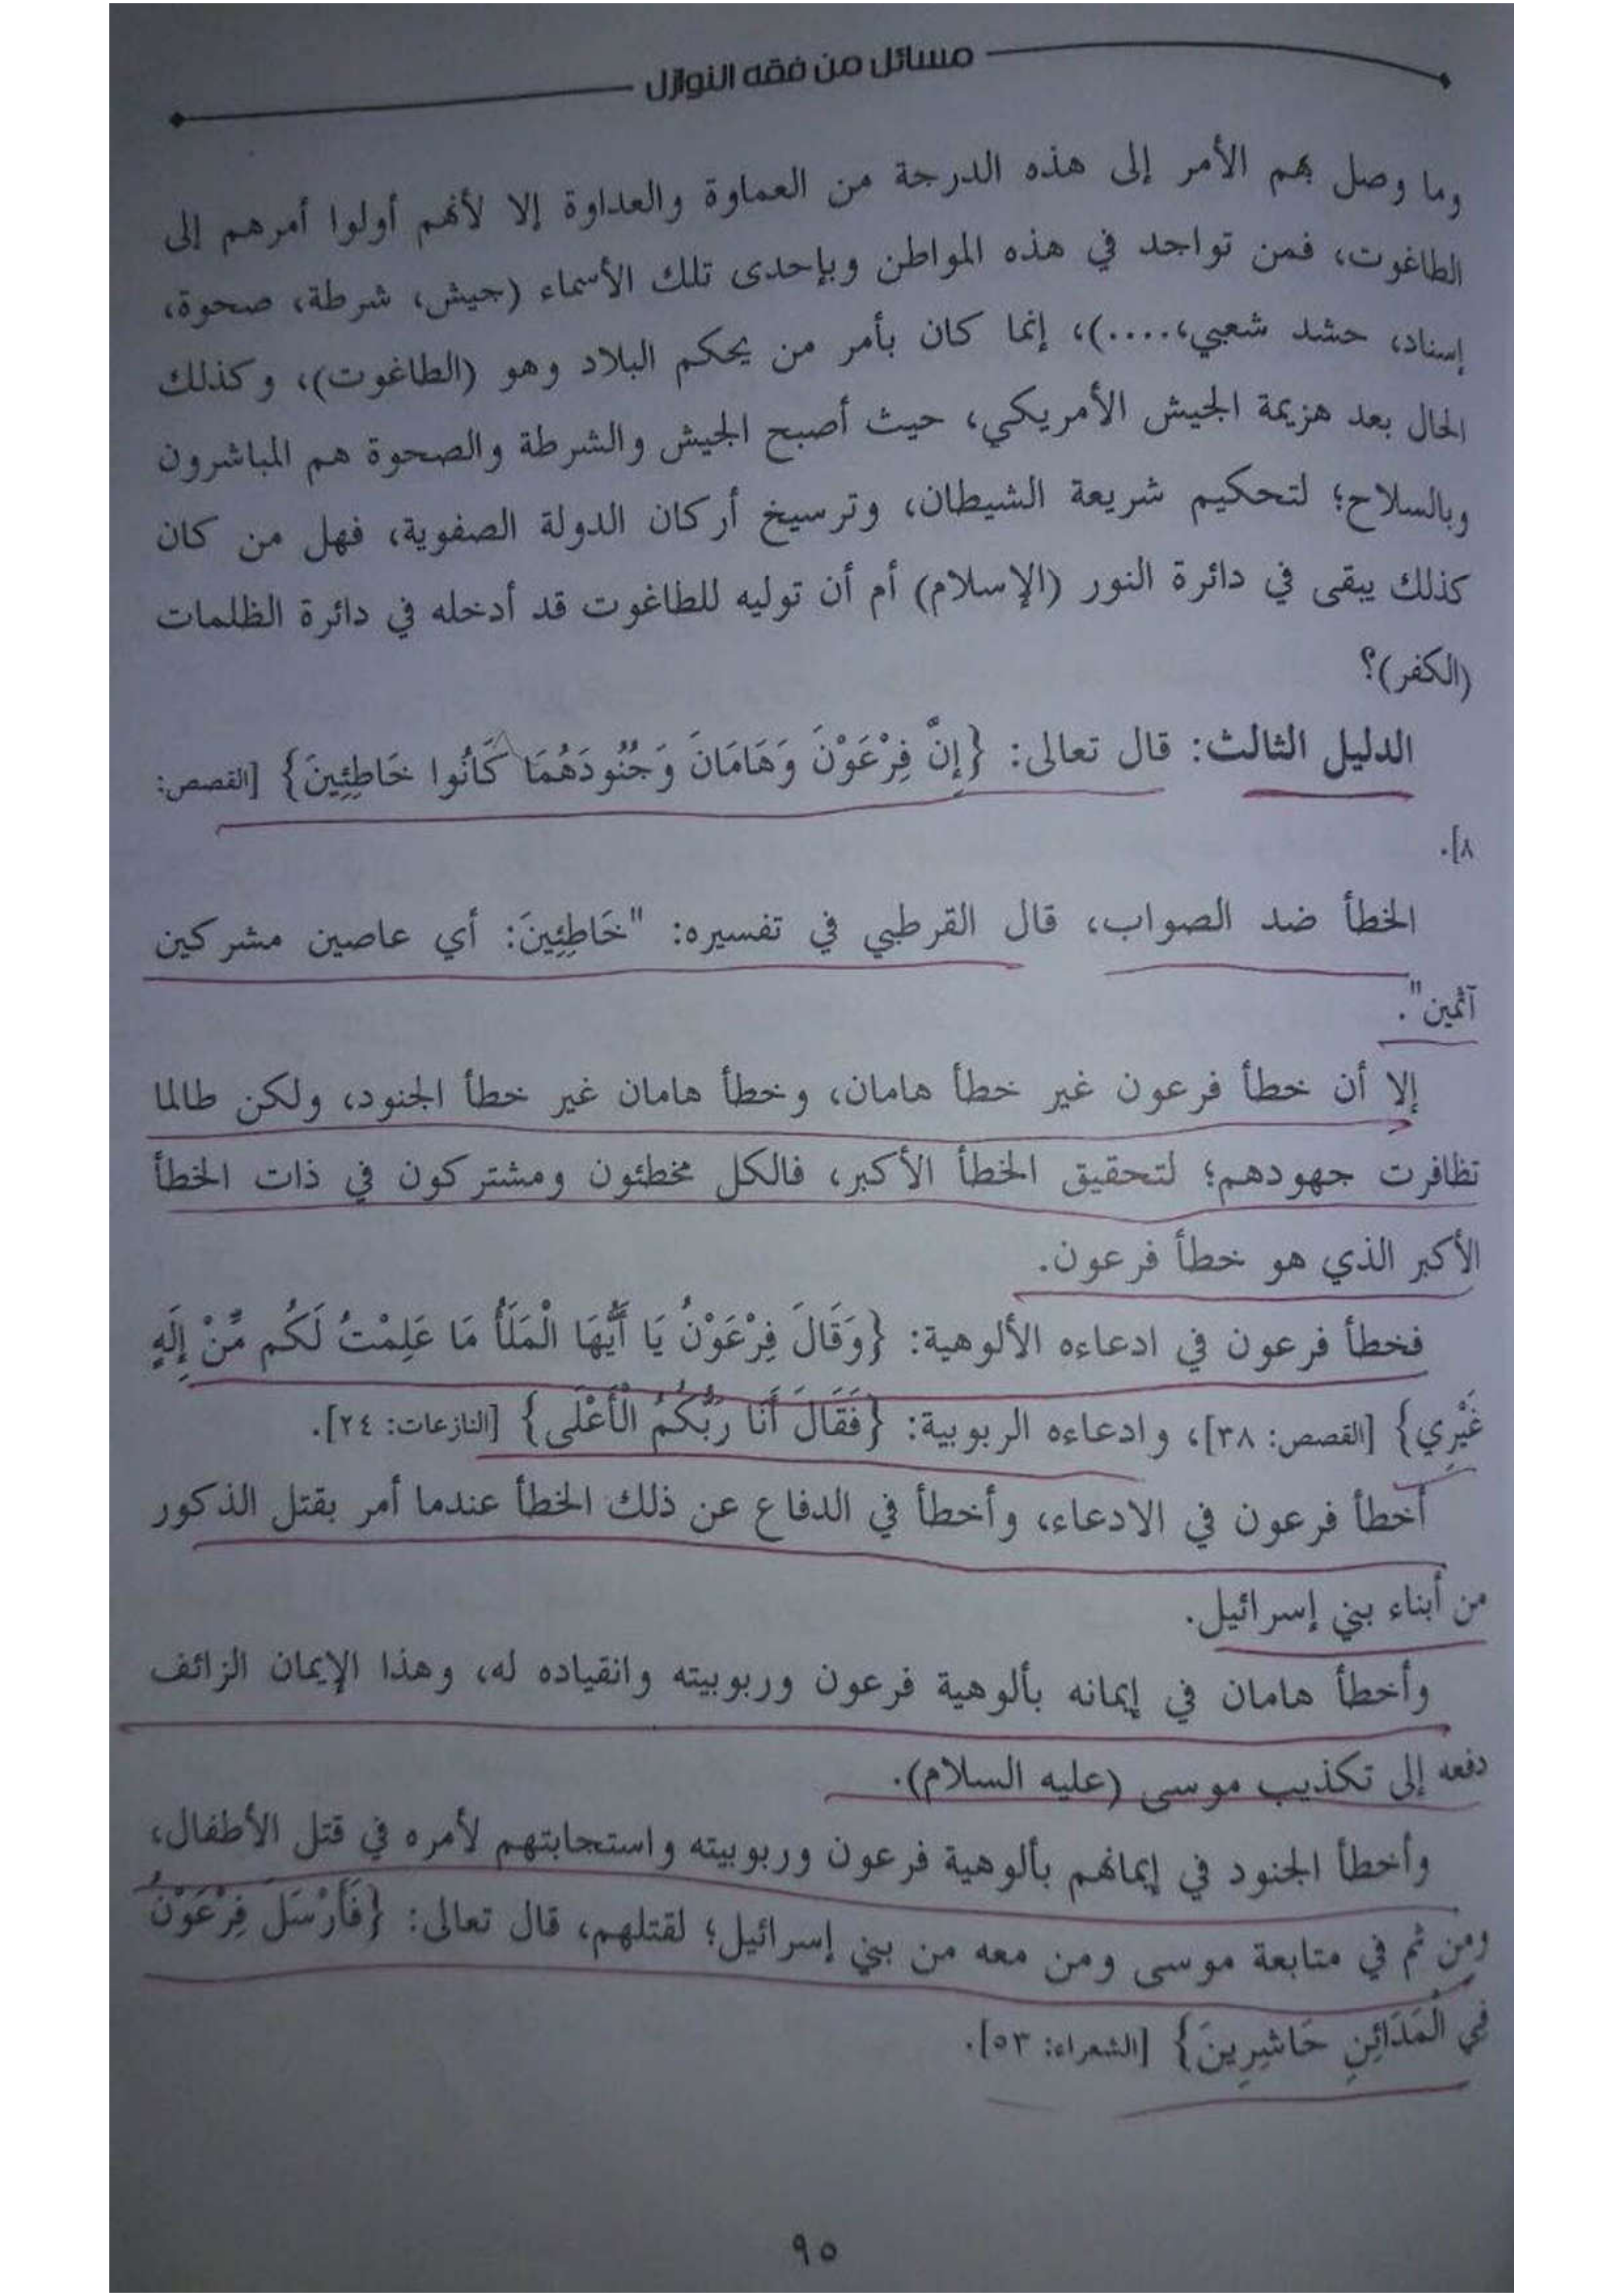 مسائل من فقه النوازل
وما وصل بهم الأمر إلى هذه الدرجة من العماوة والعداوة إلا لأنهم أولوا أمرهم إلى
الطاغوت، فمن تواجد في هذه المواطن وبإحدى تلك الأسماء (جيش، شرطة، صحوة،
إسناد، حشد شعبي،....)، إنما كان بأمر من يحكم البلاد وهو (الطاغوت)، وكذلك
الحال بعد هزيمة الجيش الأمريكي، حيث أصبح الجيش والشرطة والصحوة هم المباشرون
وبالسلاح؛ لتحكيم شريعة الشيطان، وترسيخ أركان الدولة الصفوية، فهل من كان
كذلك يبقى في دائرة النور (الإسلام) أم أن توليه للطاغوت قد أدخله في دائرة الظلمات
(الكفر)؟
الدليل الثالث: قال تعالى: {إِنَّ فِرْعَوْنَ وَهَامَانَ وَجُنُودَهُمَا كَانُوا خَاطِئِينَ} [القصص:
٨].
الخطأ ضد الصواب، قال القرطبي في تفسيره: "خَاطِئِينَ: أي عاصين مشركين
آثمين".
إلا أن خطأ فرعون غير خطأ هامان، وخطأ هامان غير خطأ الجنود، ولكن طالما
تظافرت جهودهم؛ لتحقيق الخطأ الأكبر، فالكل مخطئون ومشتركون في ذات الخطأ
الأكبر الذي هو خطأ فرعون.
فخطأ فرعون في ادعاءه الألوهية: {وَقَالَ فِرْعَوْنُ يَا أَيُّهَا الْمَلَأُ مَا عَلِمْتُ لَكُم مِّنْ إِلَهٍ
غَيْرِي} [القصص: ٣٨]، وادعاءه الربوبية: {فَقَالَ أَنَا رَبُّكُمُ الْأَعْلَى} [النازعات: ٢٤].
أخطأ فرعون في الادعاء، وأخطأ في الدفاع عن ذلك الخطأ عندما أمر بقتل الذكور
من أبناء بني إسرائيل.
وأخطأ هامان في إيمانه بألوهية فرعون وربوبيته وانقياده له، وهذا الإيمان الزائف
دفعه إلى تكذيب موسى (عليه السلام).
وأخطأ الجنود في إيمانهم بألوهية فرعون وربوبيته واستجابتهم لأمره في قتل الأطفال،
ومن ثم في متابعة موسى ومن معه من بني إسرائيل؛ لقتلهم، قال تعالى: {فَأَرْسَلَ فِرْعَوْنُ
فِي الْمَدَائِنِ حَاشِرِينَ} [الشعراء: ٥٣].
٩٥